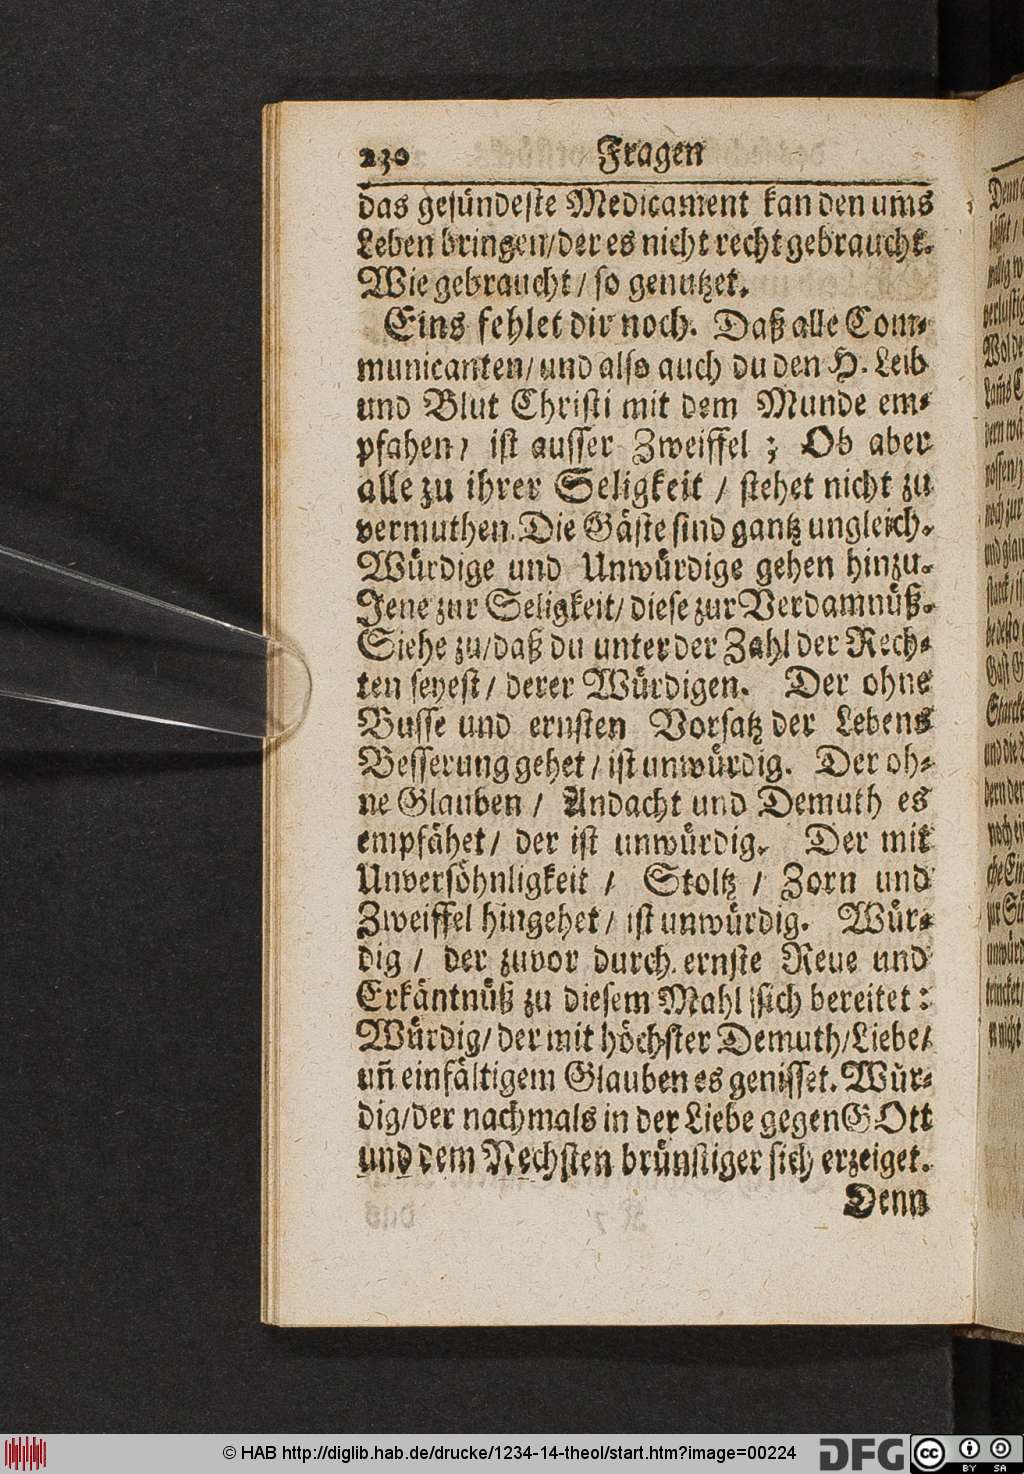 230 Fragen
das gesündeste Medicament kan den ums
Leben bringen/der es nicht recht gebraucht.
Wie gebraucht / so genutzet.
Eins fehlet dir noch. Daß alle Com-
municanten/ und also auch du den H. Leib
und Blut Christi mit dem Munde em-
pfahen / ist ausser Zweiffel ; Ob aber
alle zu ihrer Seligkeit / stehet nicht zu
vermuthen. Die Gäste sind gantz ungleich.
Würdige und Unwürdige gehen hinzu.
Jene zur Seligkeit/ diese zur Verdamnüß.
Siehe zu/daß du unter der Zahl der Rech-
ten seyest / derer Würdigen. Der ohne
Busse und ernsten Vorsatz der Lebens
Besserung gehet / ist unwürdig. Der oh-
ne Glauben / Andacht und Demuth es
empfähet / der ist unwürdig. Der mit
Unversöhnligkeit / Stoltz / Zorn und
Zweiffel hingehet / ist unwürdig. Wür-
dig / der zuvor durch ernste Reue und
Erkäntnüß zu diesem Mahl sich bereitet :
Würdig/ der mit höchster Demuth/Liebe/
uñ einfältigem Glauben es genisset. Wür-
dig/der nachmals in der Liebe gegen GOtt
und dem Nechsten brünstiger sich erzeiget.
Denn
© HAB http://diglib.hab.de/drucke/1234-14-theol/start.htm?image=00224 DFG cc BY SA